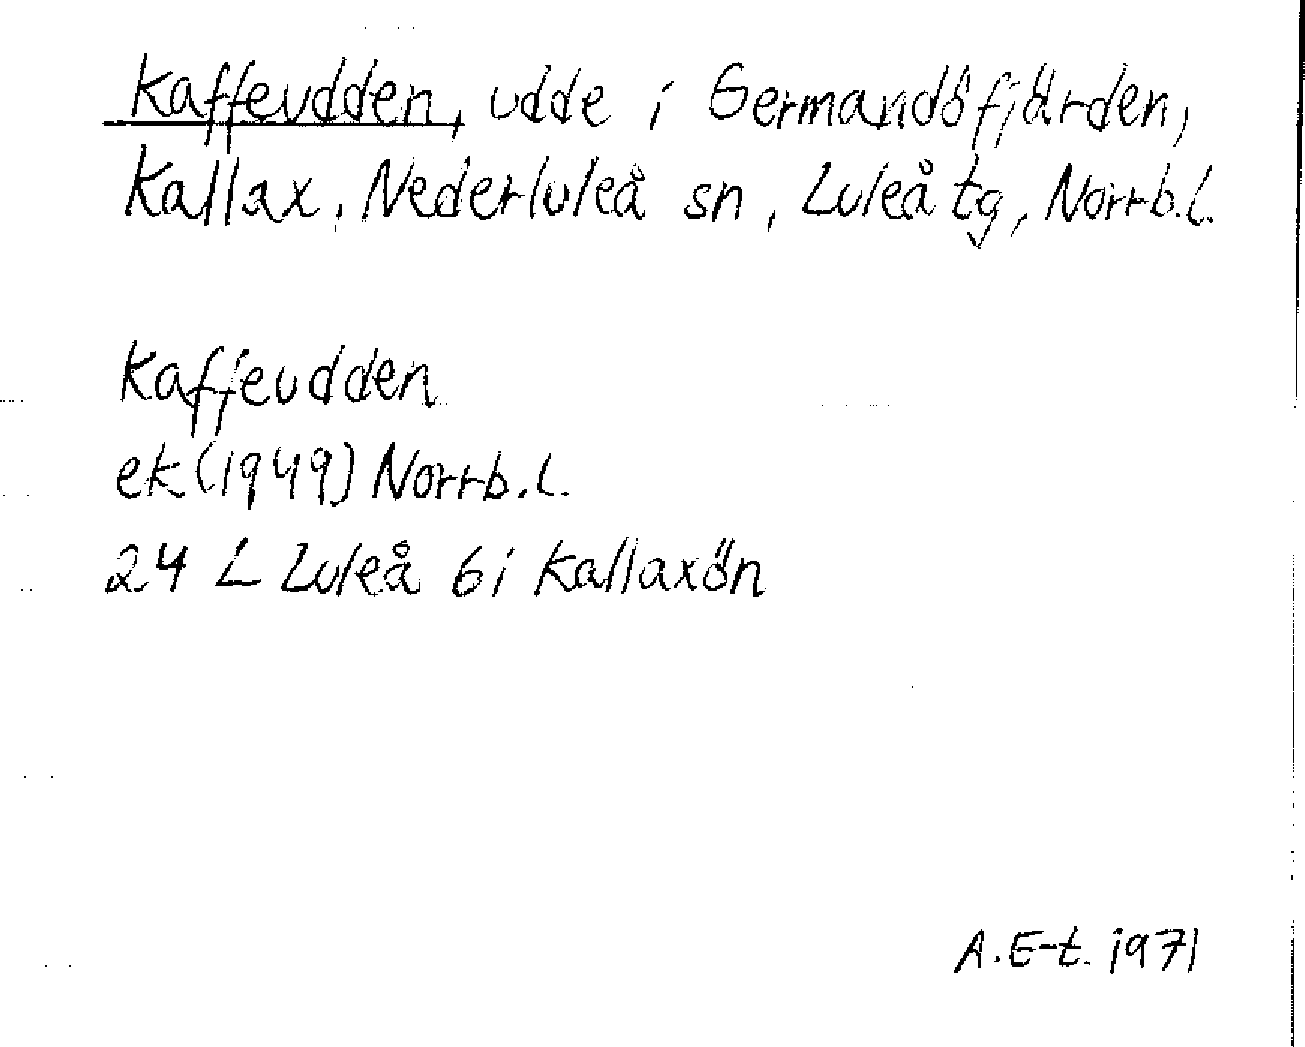 Kaffeudden, udde i Germandöfjärden,
Kallax, Nederluleå sn, Luleå tg, Norrb.l.
Kaffeudden
ek(1949) Norrb.l.
24 L Luleå 6i Kallaxön
A.E-t. 1971